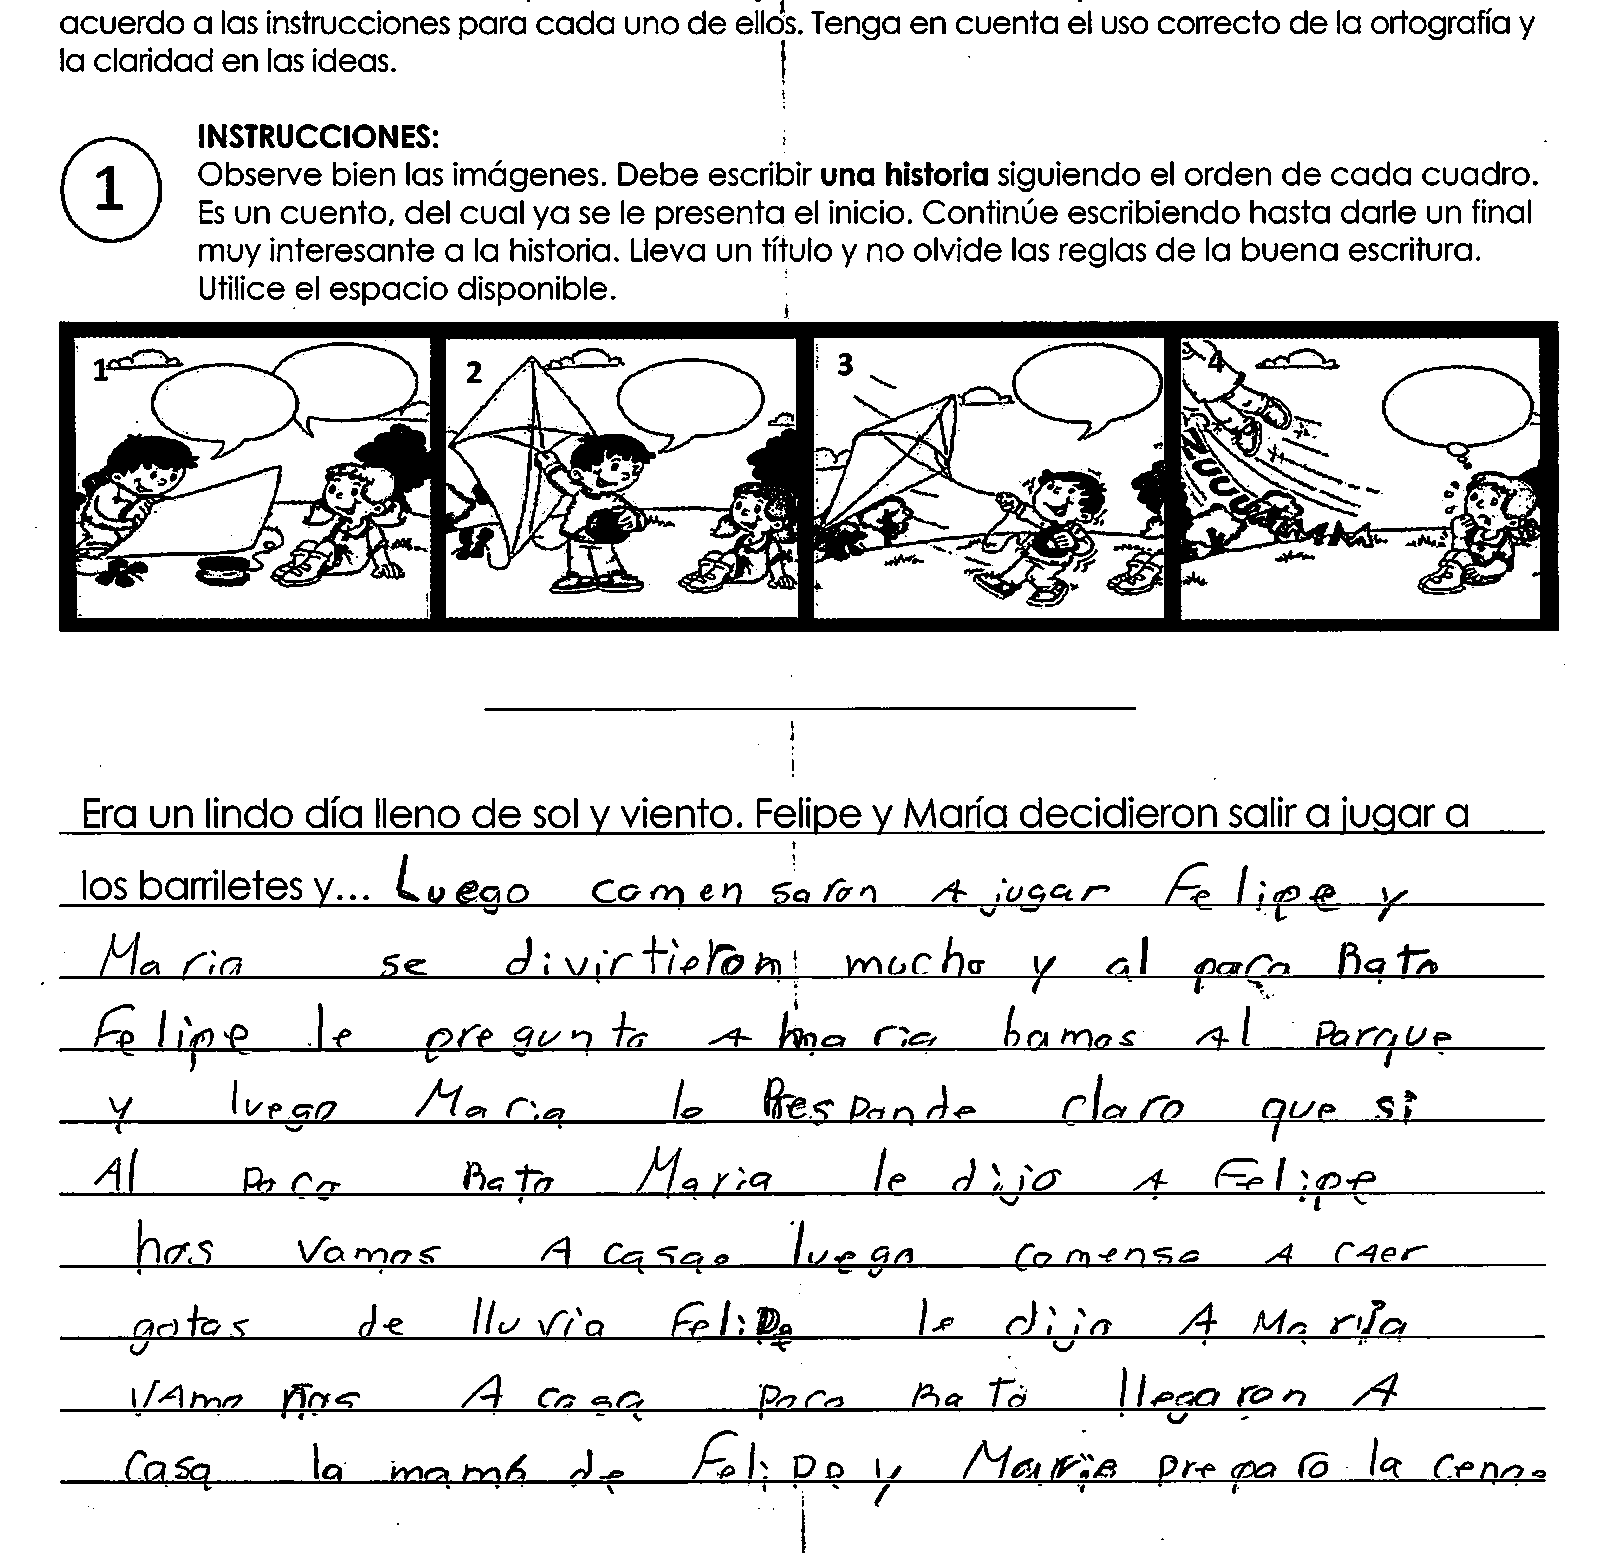 acuerdo a las instrucciones para cada uno de ellos. Tenga en cuenta el uso correcto de la ortografía y
la claridad en las ideas.
INSTRUCCIONES:
1
Observe bien las imágenes. Debe escribir una historia siguiendo el orden de cada cuadro.
Es un cuento, del cual ya se le presenta el inicio. Continúe escribiendo hasta darle un final
muy interesante a la historia. Lleva un título y no olvide las reglas de la buena escritura.
Utilice el espacio disponible.
1 2 3 4
Era un lindo día lleno de sol y viento. Felipe y María decidieron salir a jugar a
los barriletes y... Luego comen saron A jugar Felipe y
Maria se divirtieron mucho y al poco Rato
Felipe le pregunto A maria bamos Al Parque
y luego Maria le Responde claro que si
Al poco Rato Maria le dijo A Felipe
hos vamos A casa. luego comenso A caer
gotas de lluvia Felipe le dijo A Maria
VAmo nos A casa poco Rato llegaron A
casa la mamá de Felipe y Maria preparo la cena.